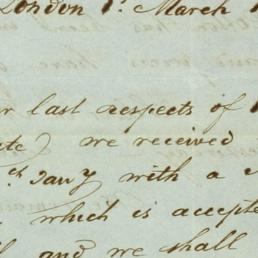 London 1st March
last respects of
we received
Jany with a
which is accepte
and we shall